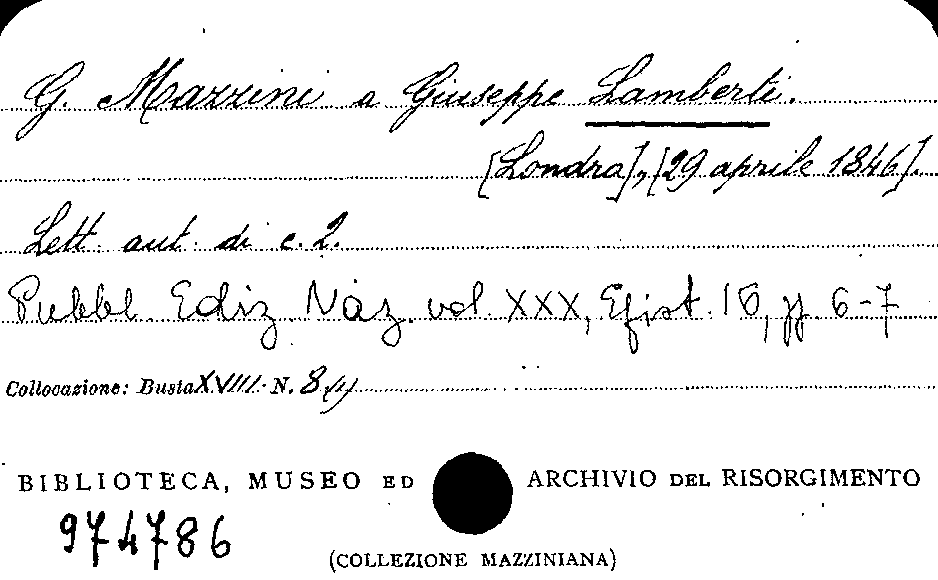 G. Mazzini a Giuseppe Lamberti.
[Londra], [29 aprile 1846].
Lett. aut. di c. 2.
Pubbl. Ediz. Naz. vol. XXX, Epist. 16, pp. 6-7
Collocazione: Busta XVIII. N. 8
BIBLIOTECA, MUSEO ED ARCHIVIO DEL RISORGIMENTO
974786
(COLLEZIONE MAZZINIANA)